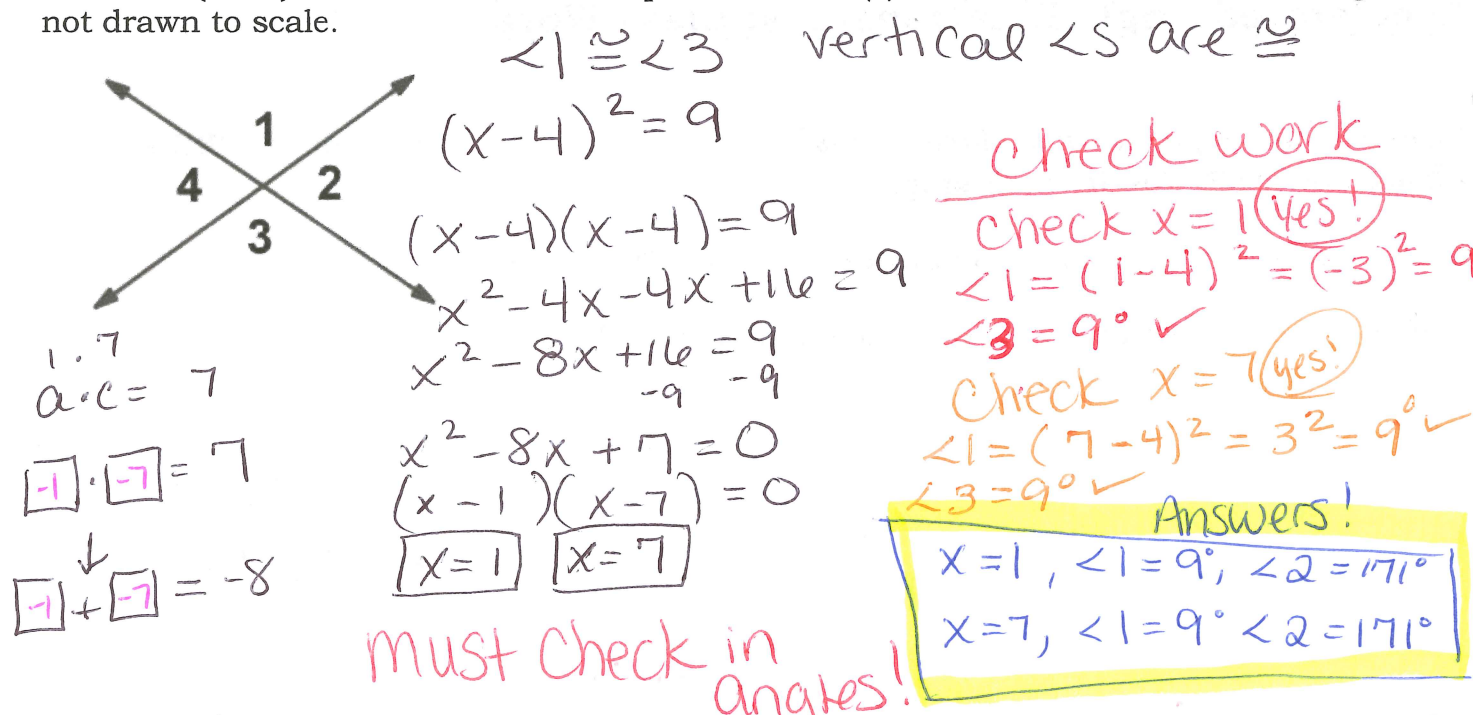 not drawn to scale.
<1 ≅ <3 vertical <s are ≅
1
4
2
3
(x-4)² = 9
(x-4)(x-4) = 9
x² -4x -4x +16 = 9
x² -8x +16 = 9
-9 -9
x² -8x + 7 = 0
(x - 1)(x - 7) = 0
x = 1 x = 7
1 · 7
a·c = 7
-1 · -7 = 7
↓
-1 + -7 = -8
must check in
check work
check x = 1 yes!
<1 = (1-4)² = (-3)² = 9
<3 = 9° ✓
check x = 7 yes!
<1 = (7-4)² = 3² = 9° ✓
<3 = 9° ✓
Answers!
x = 1, <1 = 9°, <2 = 171°
x = 7, <1 = 9° <2 = 171°